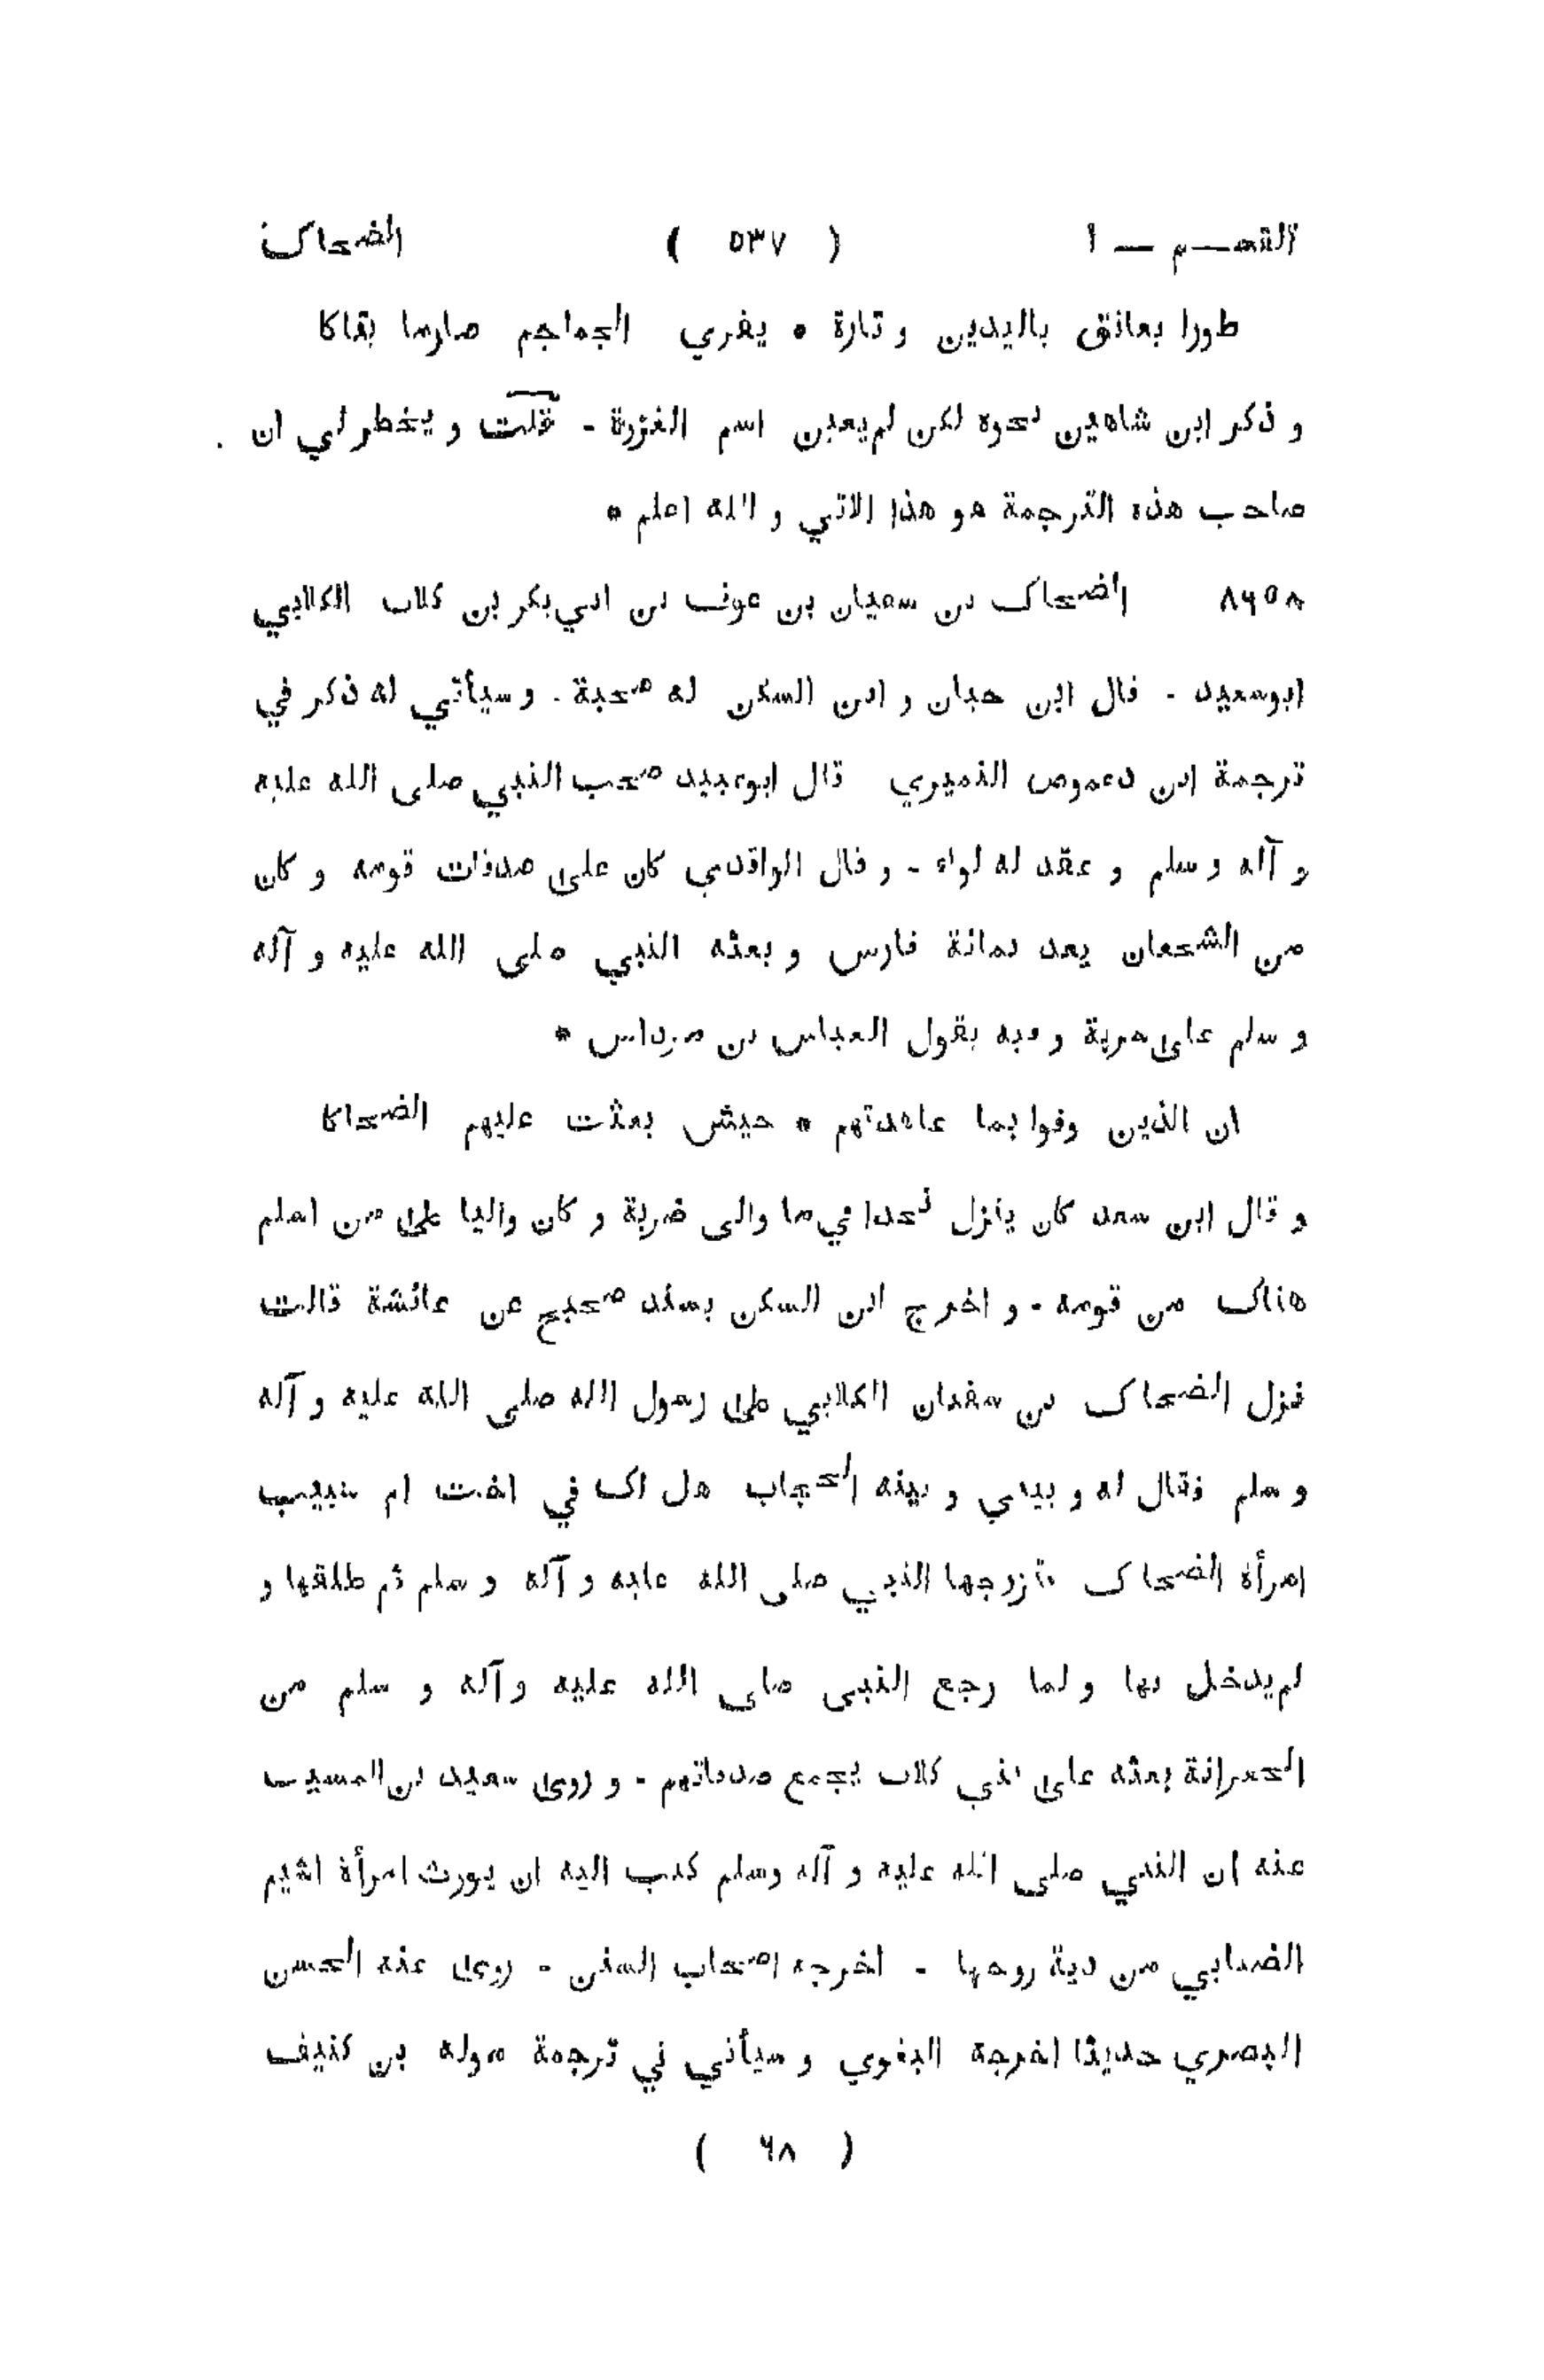 القسم — ١ ( ٥٣٧ ) الضحاك
طورا بعانق باليدين و تارة * يفري الجماجم صارما بقاكا
و ذكر ابن شاهين نحوه لكن لم يعين اسم الغزوة - قلت و يخطر لي ان
صاحب هذه الترجمة هو هذا الاتي و الله اعلم *
٨٤٥٨ الضحاك بن سفيان بن عوف بن ابي بكر بن كلاب الكلابي
ابو سعيد - قال ابن حبان و ابن السكن له صحبة - و سيأتي له ذكر في
ترجمة ابن دعموص النميري قال ابو عبيد صحب النبي صلى الله عليه
و آله و سلم و عقد له لواء - و قال الواقدي كان على صدقات قومه و كان
من الشجعان يعد بمائة فارس و بعثه النبي صلى الله عليه و آله
و سلم على سرية و فيه يقول العباس بن مرداس *
ان الذين وفوا بما عاهدتهم * جيش بعثت عليهم الضحاكا
و قال ابن سعد كان ينزل نجدا في ما والى ضرية و كان واليا على من اسلم
هناك من قومه - و اخرج ابن السكن بسند صحيح عن عائشة قالت
نزل الضحاك بن سفيان الكلابي على رسول الله صلى الله عليه و آله
و سلم فقال له و بيني و بينه الحجاب هل لك في اخت ام شبيب
امرأة الضحاك فتزوجها النبي صلى الله عليه و آله و سلم ثم طلقها و
لم يدخل بها و لما رجع النبي صلى الله عليه وآله و سلم من
الجعرانة بعثه على بني كلاب يجمع صدقاتهم - و روى سعيد بن المسيب
عنه ان النبي صلى الله عليه و آله وسلم كتب اليه ان يورث امرأة اشيم
الضبابي من دية زوجها - اخرجه اصحاب السنن - روى عنه الحسن
البصري حديثا اخرجه البغوي و سيأتي في ترجمة موله بن كنيف
( ٦٨ )